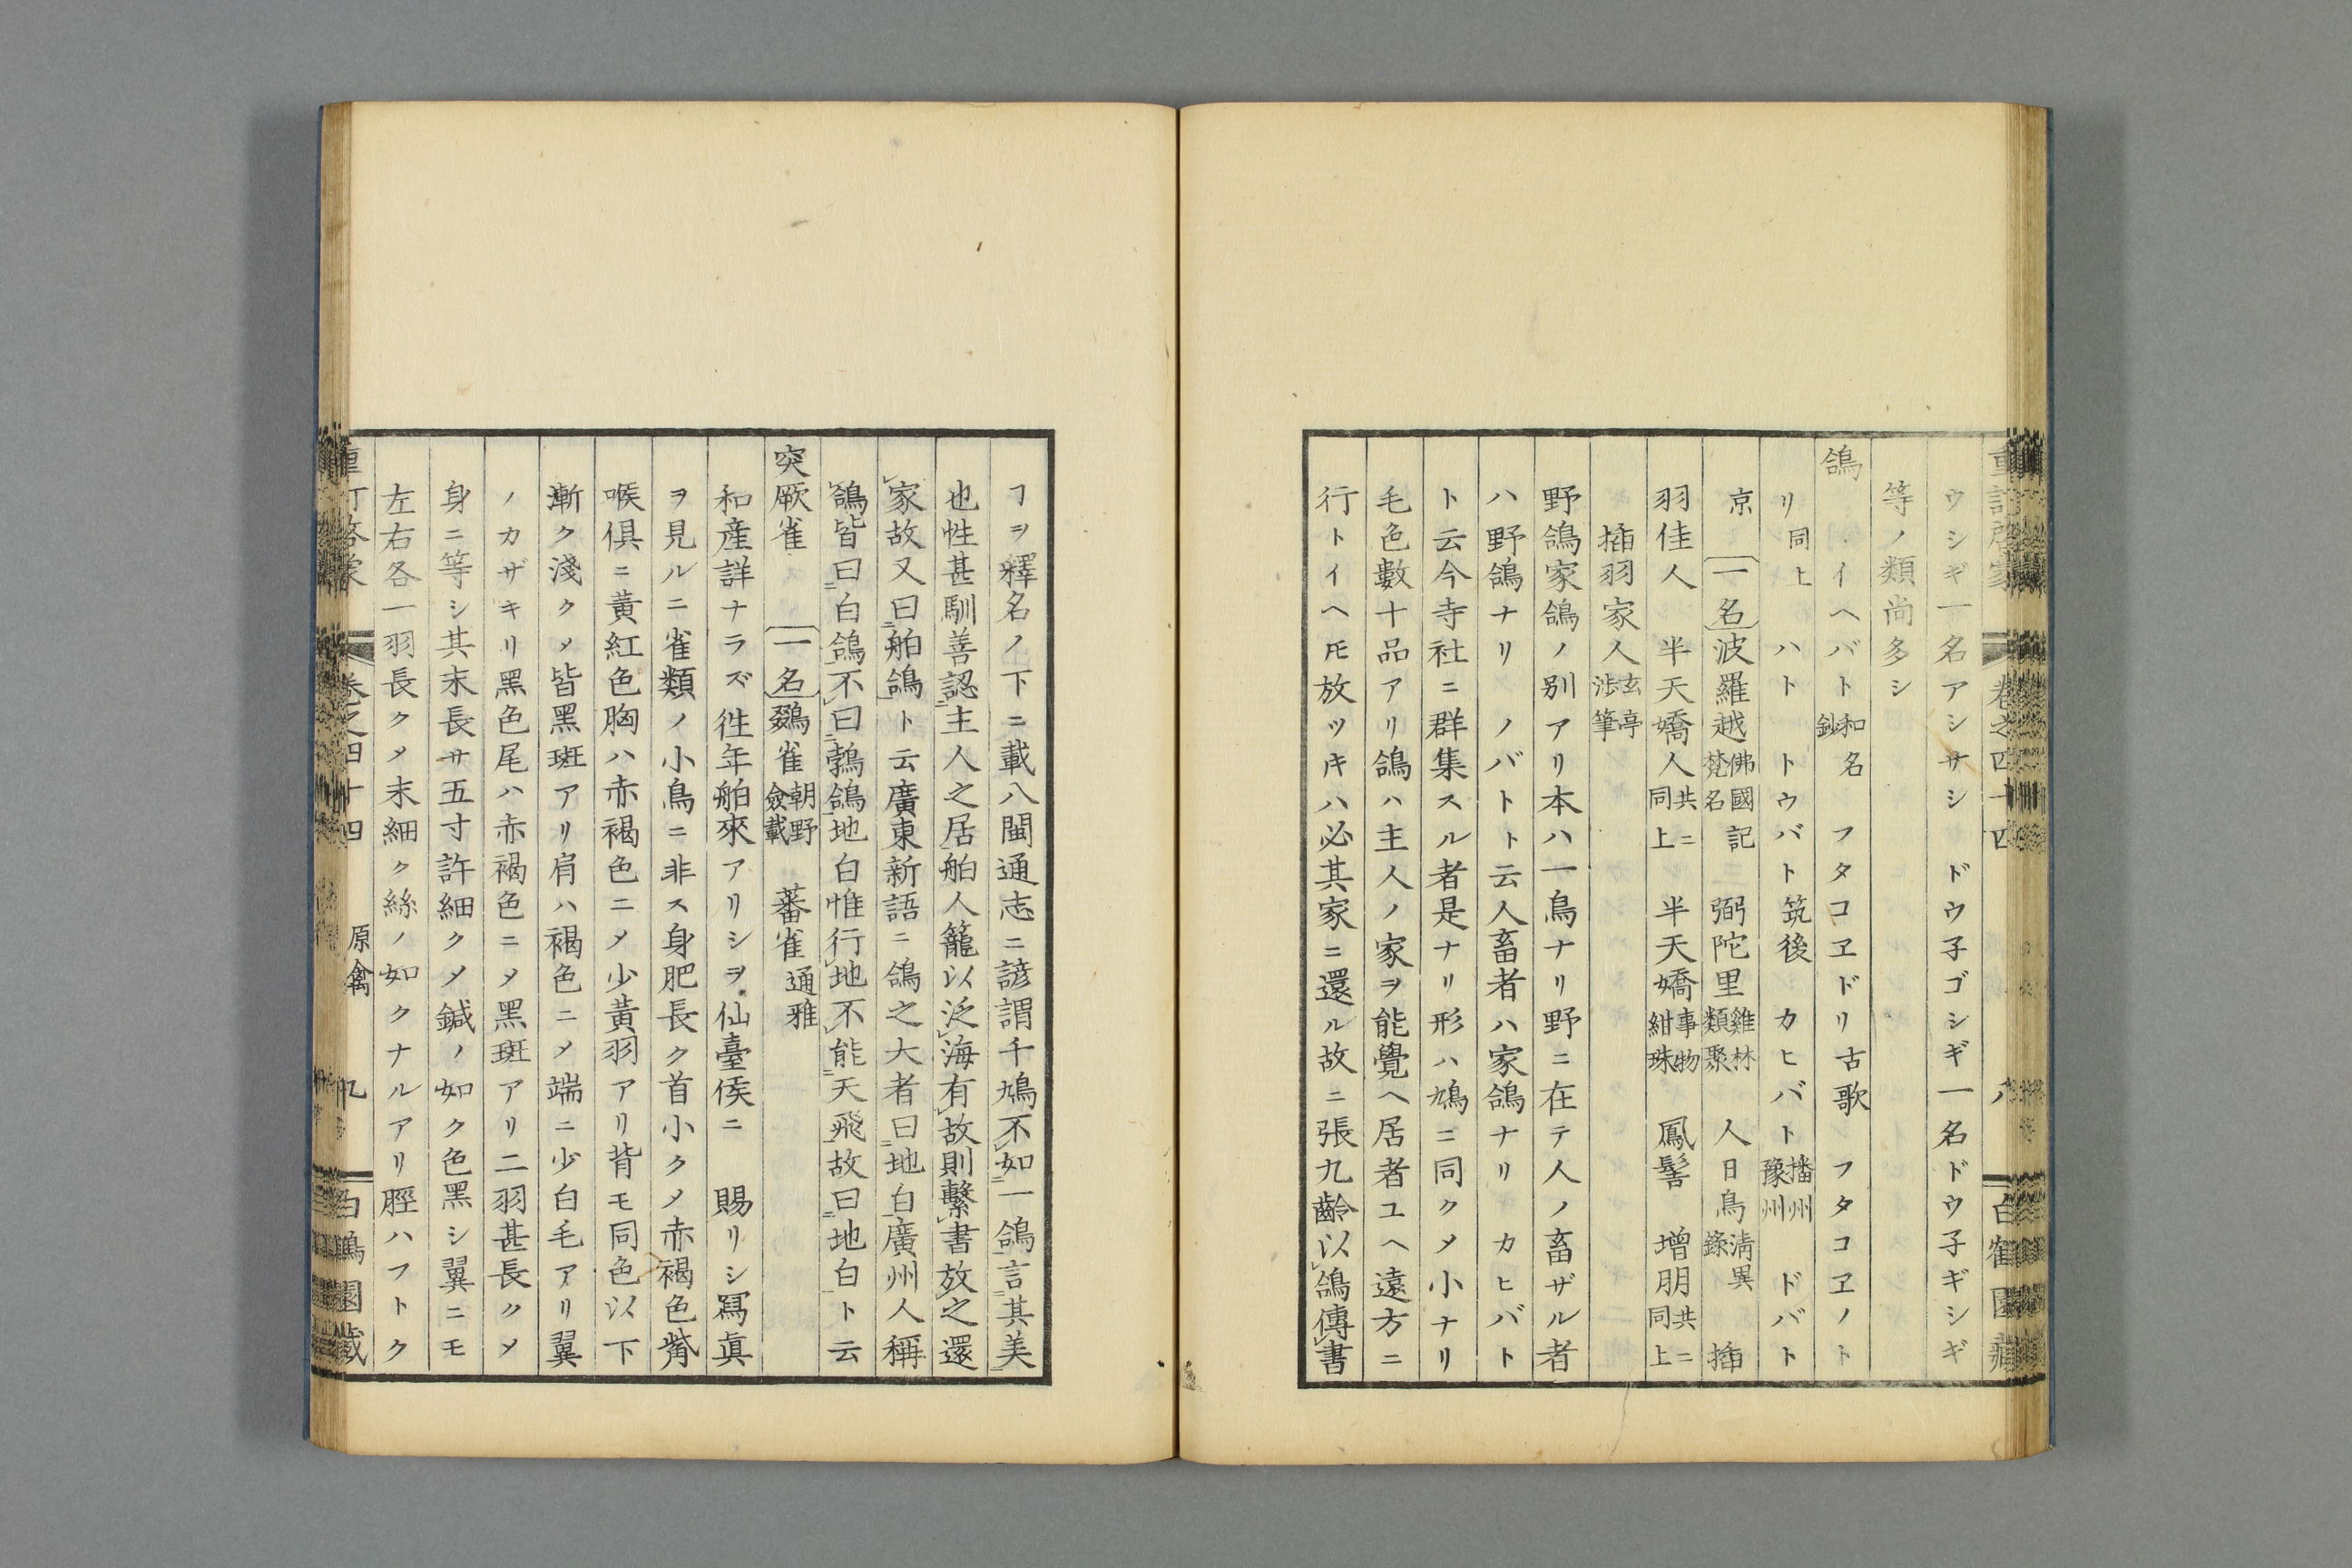 ウシギ一名アシサシ　ドウ子ゴシギ一名ドウ子ギシギ
等ノ類尚多シ
鴿　イヘバト和名鈔　フタコヱドリ古歌　フタコヱノト
リ同上　ハト　トウバト筑後　カヒバト播州豫州　ドバト
京　一名波羅越佛國記梵名　弻陀里雞林類聚　人日鳥清異錄　插
羽佳人　半天嬌人共ニ同上　半天嬌事物紺珠　鳳髻　增朋共ニ同上
插羽家人玄亭涉筆
野鴿家鴿ノ別アリ本ハ一鳥ナリ野ニ在テ人ノ畜ザル者
ハ野鴿ナリ　ノバトト云人畜者ハ家鴿ナリ　カヒバト
ト云今寺社ニ群集スル者是ナリ形ハ鳩ニ同クメ小ナリ
毛色數十品アリ鴿ハ主人ノ家ヲ能覺ヘ居者ユヘ遠方ニ
行トイヘ𪜈放ツキハ必其家ニ還ル故ニ張九齡以鴿傳書
ヿヲ釋名ノ下ニ載八閩通志ニ諺謂千鳩不如一鴿言其美
也性甚馴善認主人之居舶人籠以泛海有故則繫書放之還
家故又曰舶鴿ト云廣東新語ニ鴿之大者曰地白廣州人稱
鴿皆曰白鴿不曰鵓鴿地白惟行地不能天飛故曰地白ト云
突厥雀　一名鵽雀朝野僉載　蕃雀通雅
和產詳ナラズ徃年舶來アリシヲ仙臺侯ニ　賜リシ冩眞
ヲ見ルニ雀類ノ小鳥ニ非ス身肥長ク首小クメ赤褐色觜
喉倶ニ黃紅色胸ハ赤褐色ニメ少黃羽アリ背モ同色以下
漸ク淺クメ皆黑斑アリ肩ハ褐色ニメ端ニ少白毛アリ翼
ノカザキリ黑色尾ハ赤褐色ニメ黑斑アリ二羽甚長クメ
身ニ等シ其末長サ五寸許細クメ鍼ノ如ク色黑シ翼ニモ
左右各一羽長クメ末細ク絲ノ如クナルアリ脛ハフトク
卷之四十四　原禽　九